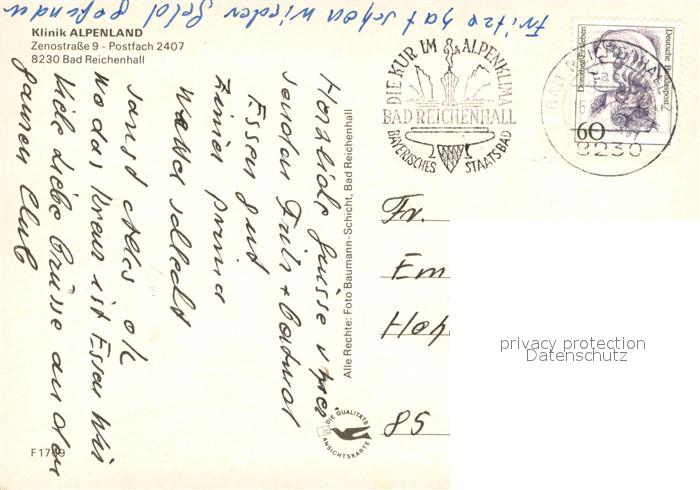 Fritze hat schon wieder Geld gefunden
Klinik ALPENLAND
Zenostraße 9 - Postfach 2407
8230 Bad Reichenhall
Herzliche Grüsse
senden
Essen gut
Zimmer prima
Wetter schlecht
sonst alles ok
wo das Kreuz ist Essen wir
Viele Liebe Grüsse an den
ganzen Club
F 17
Alle Rechte: Foto Baumann-Schicht, Bad Reichenhall
DIE QUALITÄTS
ANSICHTSKARTE
DIE KUR IM ALPENKLIMA
BAD REICHENHALL
BAYERISCHES STAATSBAD
BAD REICHENHALL
8230
Dorothea Erxleben
Deutsche Bundespost
60
Fr.
Em
Hoh
85
privacy protection
Datenschutz